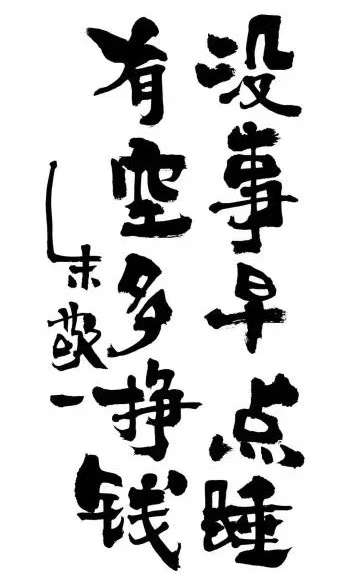 没事早点睡
有空多挣钱
朱敬一